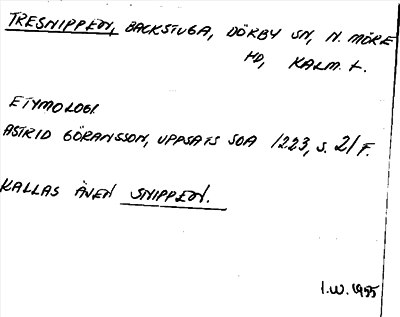 TRESNIPPEN, BACKSTUGA, DÖRBY SN, N. MÖRE
HD, KALM. L.
ETYMOLOGI
ASTRID GÖRANSSON, UPPSATS SOA 1223, S. 21 F.
KALLAS ÄVEN SNIPPEN.
I.W. 1955